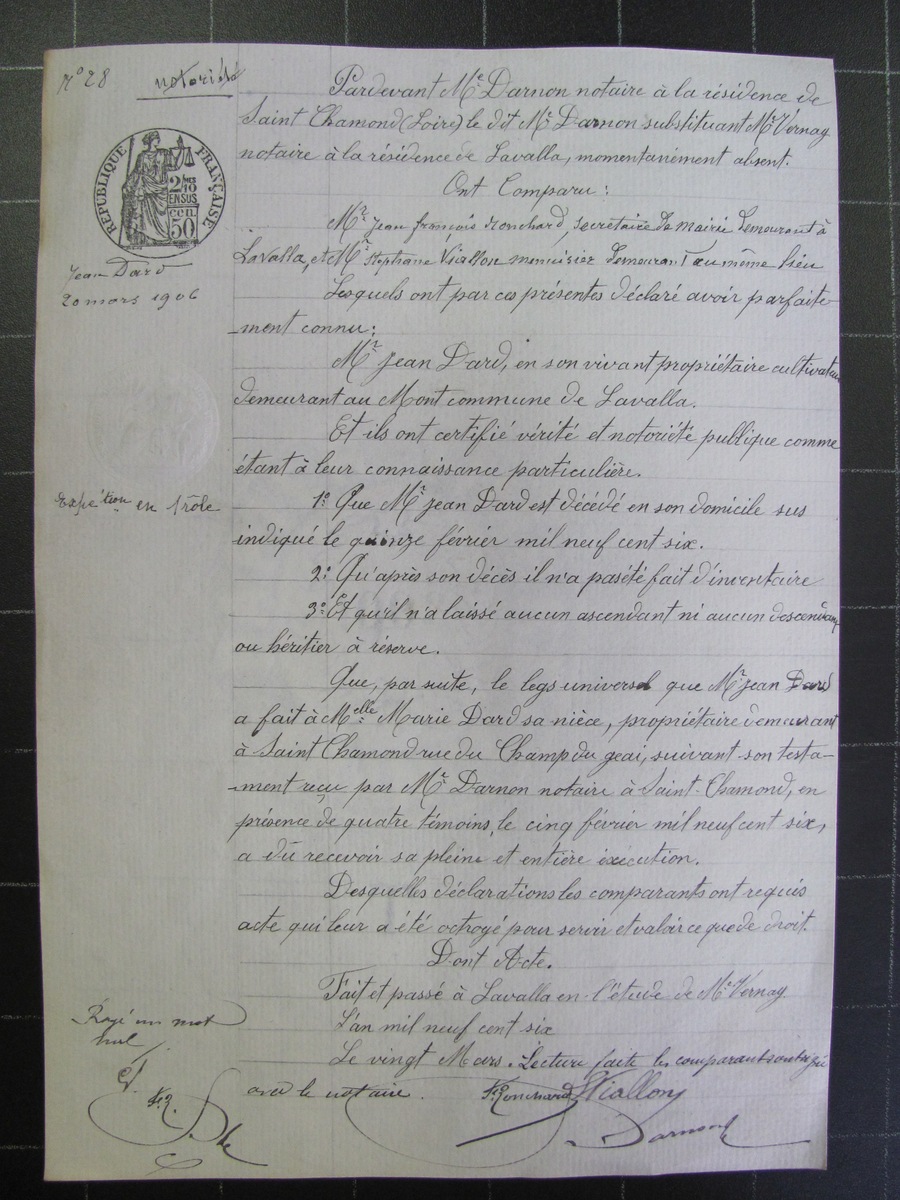 N° 28 notoriété
RÉPUBLIQUE FRANÇAISE
2/10 EN SUS
50
Jean Dard
20 mars 1906
Expétion en 1 rôle
Pardevant Me Darnon notaire à la résidence de
Saint Chamond (Loire) le dit Me Darnon substituant Me Vernay
notaire à la résidence de Lavalla, momentanément absent.
Ont Comparu :
Mr Jean françois Ronchard, secrétaire de mairie demeurant à
Lavalla, et Mr Stéphane Viallon menuisier demeurant au même lieu
Lesquels ont par ces présentes déclaré avoir parfaite-
-ment connu :
Mr Jean Dard, en son vivant propriétaire cultivateur
demeurant au Mont commune de Lavalla.
Et ils ont certifié vérité et notoriété publique comme
étant à leur connaissance particulière.
1° Que Mr Jean Dard est décédé en son domicile sus
indiqué le quinze février mil neuf cent six.
2° Qu'après son décès il n'a pas été fait d'inventaire
3° Et qu'il n'a laissé aucun ascendant ni aucun descendant
ou héritier à réserve.
Que, par suite, le legs universel que Mr Jean Dard
a fait à Melle Marie Dard sa nièce, propriétaire demeurant
à Saint Chamond rue du Champ du geai, suivant son testa-
-ment reçu par Me Darnon notaire à Saint-Chamond, en
présence de quatre témoins, le cinq février mil neuf cent six,
a dû recevoir sa pleine et entière éxécution.
Desquelles déclarations les comparants ont requis
acte qui leur a été octroyé pour servir et valoir ce que de droit.
Dont Acte.
Fait et passé à Lavalla en l'étude de Me Vernay
L'an mil neuf cent six
Le vingt Mars. Lecture faite les comparants ont signé
avec le notaire.
Ronchard Viallon
Darnon
Rayé un mot
nul